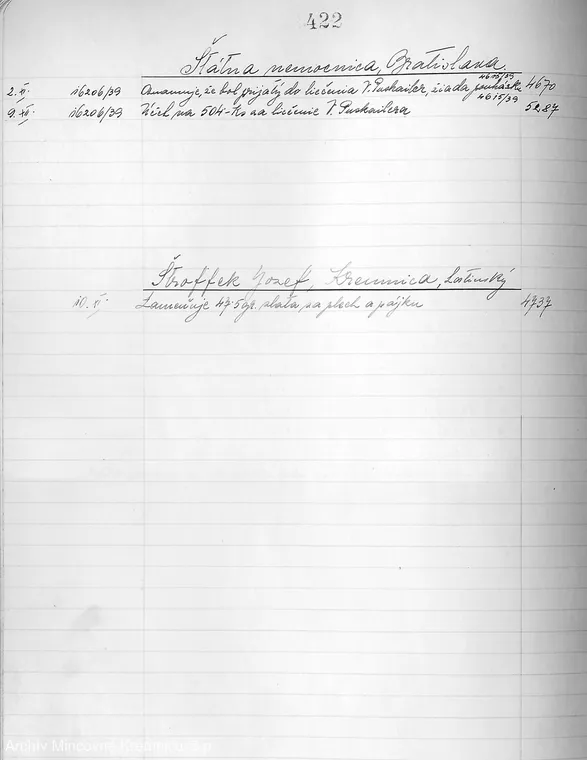 422
Štátna nemocnica, Bratislava.
4615/39
2. XI. 16206/39 Oznamuje, že bol prijatý do liečenia V. Puskailer, žiada 4670
4615/39
9. XI. 16206/39 Účet na 504-Ks za liečenie V. Puskailera 5287
Štroffek Jozef, Kremnica,
10. XI. Zameňuje 47·5 gr. zlata za plech a pájku 4737
Archív Mincovne Kremnica, š.p.